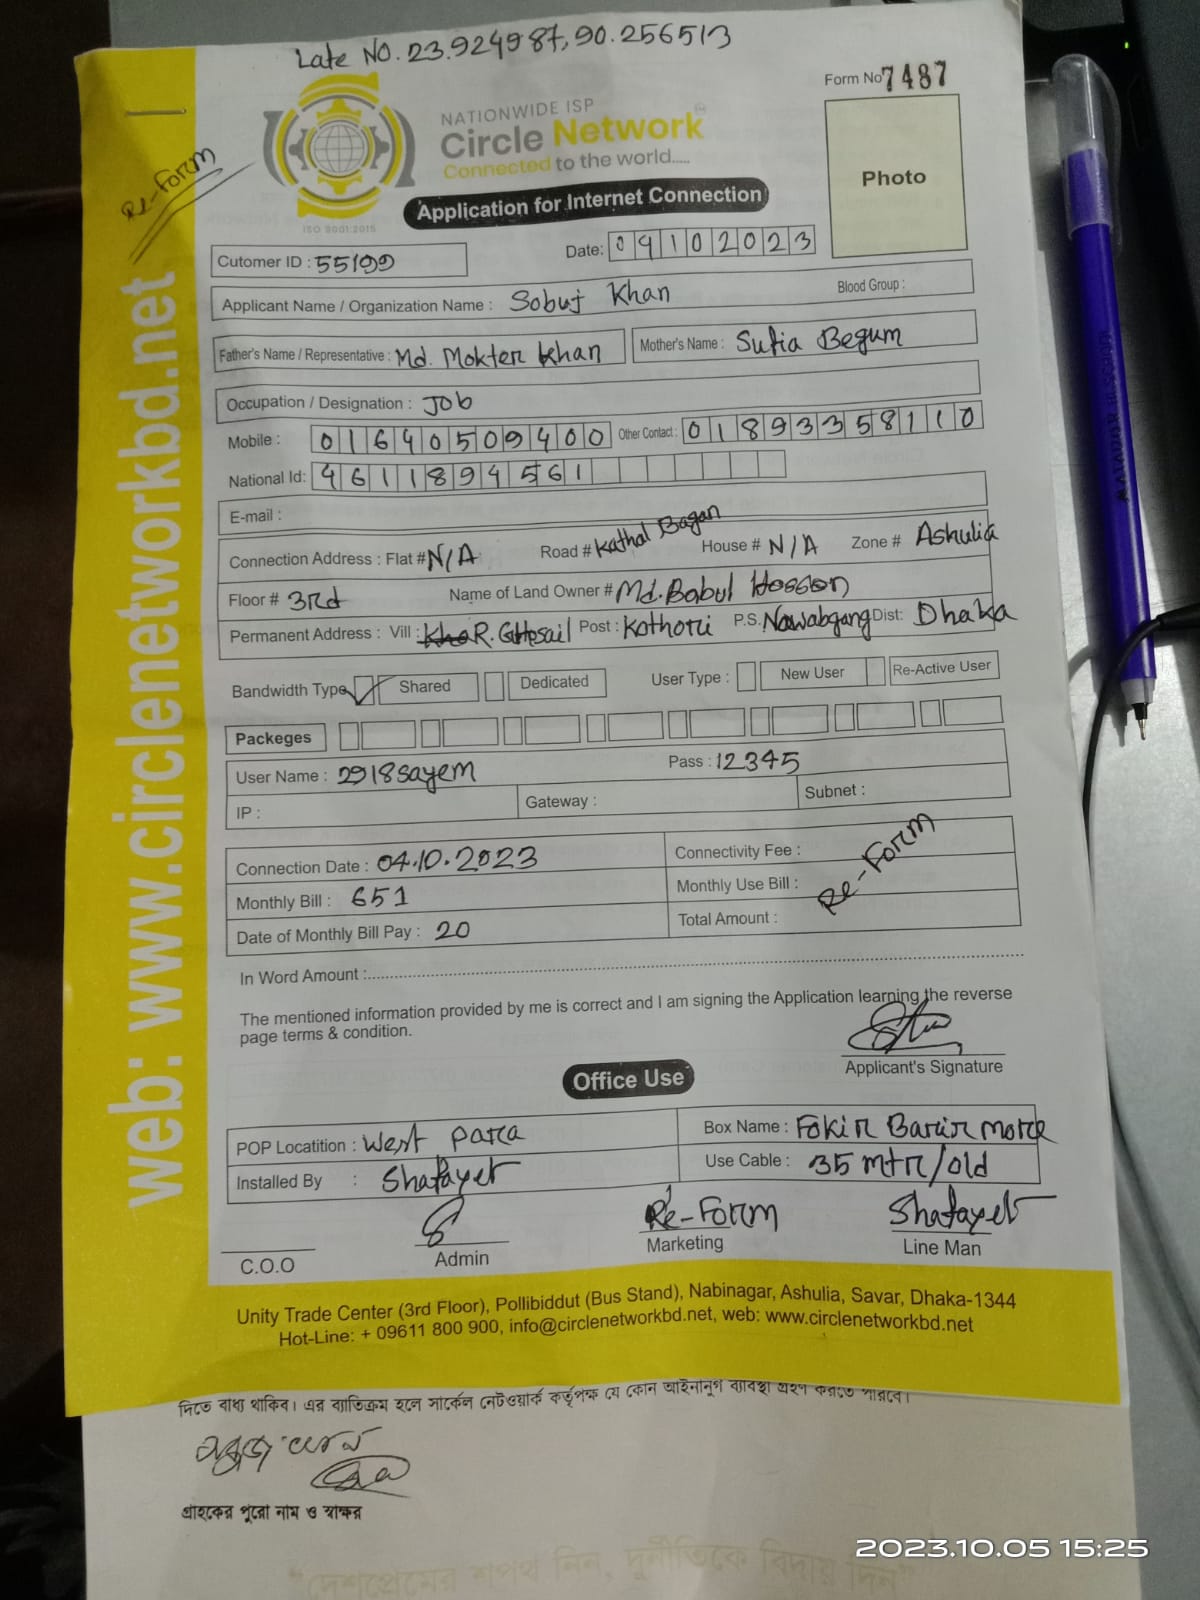 Late NO. 23.924987, 90.256513
Form No 7487
NATIONWIDE ISP
Circle Network
Connected to the world.....
ISO 9001:2015
Re-Form
Application for Internet Connection
Photo
Cutomer ID : 55199
Date: 04102023
Applicant Name / Organization Name : Sobuj Khan
Blood Group :
Father's Name / Representative : Md. Mokter Khan
Mother's Name : Sufia Begum
Occupation / Designation : Job
Mobile : 01640509400 Other Contact : 01893358110
National Id: 4611894561
E-mail :
Connection Address : Flat # N/A Road # Kathal Bagan House # N/A Zone # Ashulia
Floor # 3rd Name of Land Owner # Md. Babul Hosson
Permanent Address : Vill : R. Ghosail Post : Kothori P.S. Nawabgang Dist: Dhaka
Bandwidth Type Shared Dedicated User Type : New User Re-Active User
Packeges
User Name : 2918sayem Pass : 12345
IP : Gateway : Subnet :
Connection Date : 04.10.2023 Connectivity Fee :
Monthly Bill : 651 Monthly Use Bill :
Re-Form
Date of Monthly Bill Pay : 20 Total Amount :
In Word Amount :
The mentioned information provided by me is correct and I am signing the Application learning the reverse
page terms & condition.
Applicant's Signature
Office Use
POP Locatition : West para Box Name : Fokir Barir more
Installed By : Shafayet Use Cable : 35 mtr/old
Re-Form Shafayet
C.O.O Admin Marketing Line Man
Unity Trade Center (3rd Floor), Pollibiddut (Bus Stand), Nabinagar, Ashulia, Savar, Dhaka-1344
Hot-Line: + 09611 800 900, info@circlenetworkbd.net, web: www.circlenetworkbd.net
web: www.circlenetworkbd.net
দিতে বাধ্য থাকিব। এর ব্যতিক্রম হলে সার্কেল নেটওয়ার্ক কর্তৃপক্ষ যে কোন আইনানুগ ব্যাবস্থা গ্রহণ করতে পারবে।
গ্রাহকের পুরো নাম ও স্বাক্ষর
"দেশপ্রেমের শপথ নিন, দুর্নীতিকে বিদায় দিন"
2023.10.05 15:25